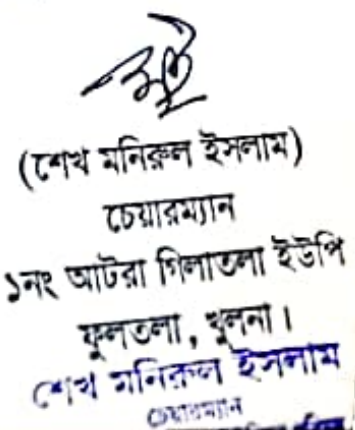 (শেখ মনিরুল ইসলাম)
চেয়ারম্যান
১নং আটরা গিলাতলা ইউপি
ফুলতলা, খুলনা।
শেখ মনিরুল ইসলাম
চেয়ারম্যান